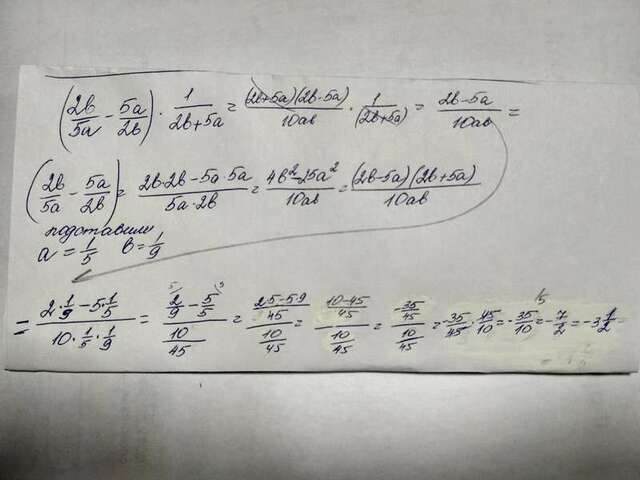 (2b/5a - 5a/2b) · 1/(2b+5a) = (2b+5a)(2b-5a)/10ab · 1/(2b+5a) = 2b-5a/10ab =
(2b/5a - 5a/2b) = 2b·2b-5a·5a/5a·2b = 4b²-25a²/10ab = (2b-5a)(2b+5a)/10ab
подставили
a = 1/5 b = 1/9
= 2·1/9 - 5·1/5 / 10·1/5·1/9 = 2/9 - 5/5 / 10/45 = 2·5-5·9/45 / 10/45 = 10-45/45 / 10/45 = -35/45 / 10/45 = -35/45 · 45/10 = -35/10 = -7/2 = -3 1/2